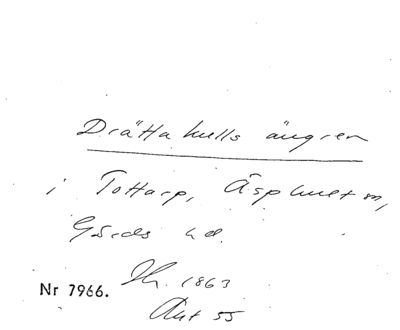 Drätta kulls ängren
i Tottarp, Äsphult sn,
Gärds hd.
Nr 7966.
Th. 1863
Akt 55